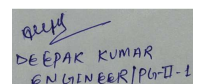 DEEPAK KUMAR
ENGINEER/PG-II-1